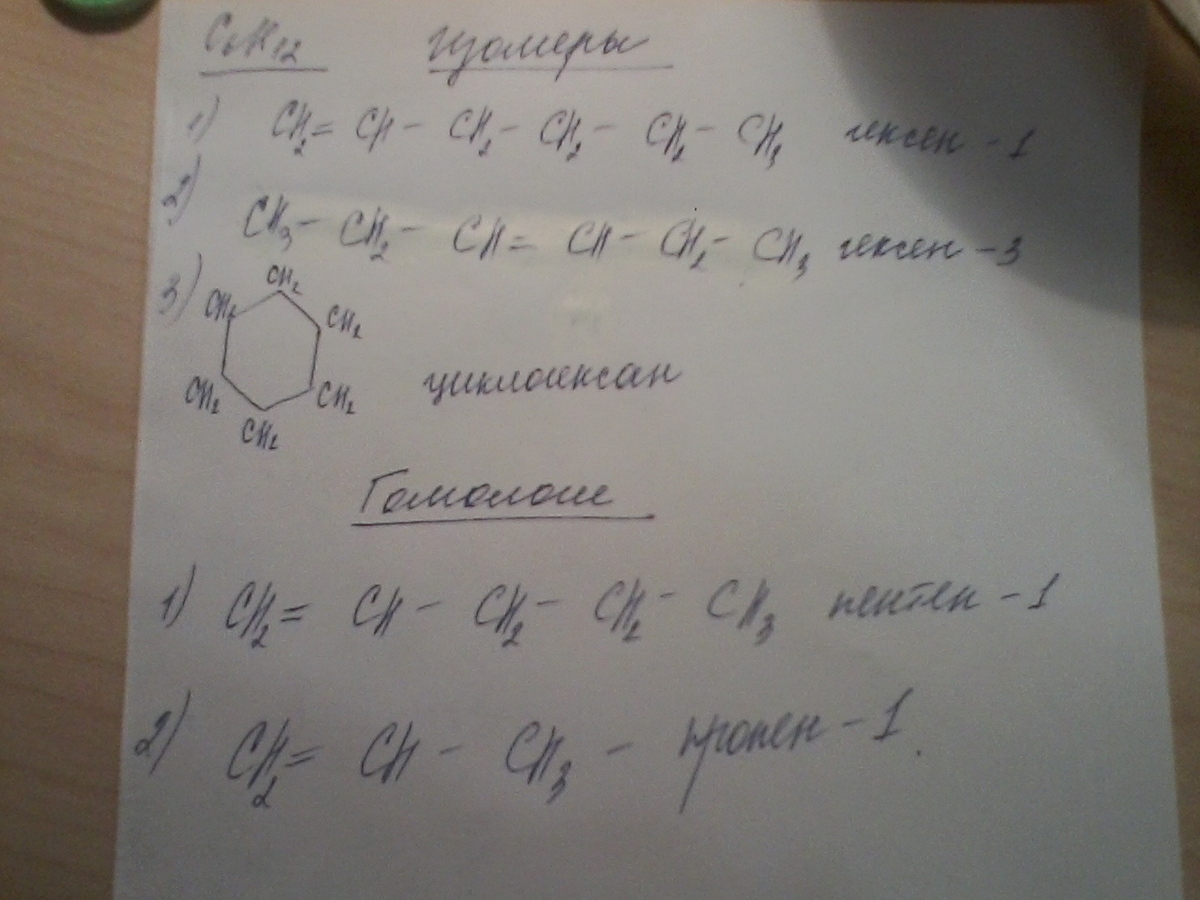 C₆H₁₂ Изомеры
1) CH₂= CH - CH₂ - CH₂ - CH₂ - CH₃ гексен -1
2) CH₃ - CH₂ - CH= CH - CH₂ - CH₃ гексен -3
3) CH₂
CH₂ CH₂
CH₂ CH₂
CH₂
циклогексан
Гомологи
1) CH₂= CH - CH₂ - CH₂ - CH₃ пентен -1
2) CH₂= CH - CH₃ - пропен -1.